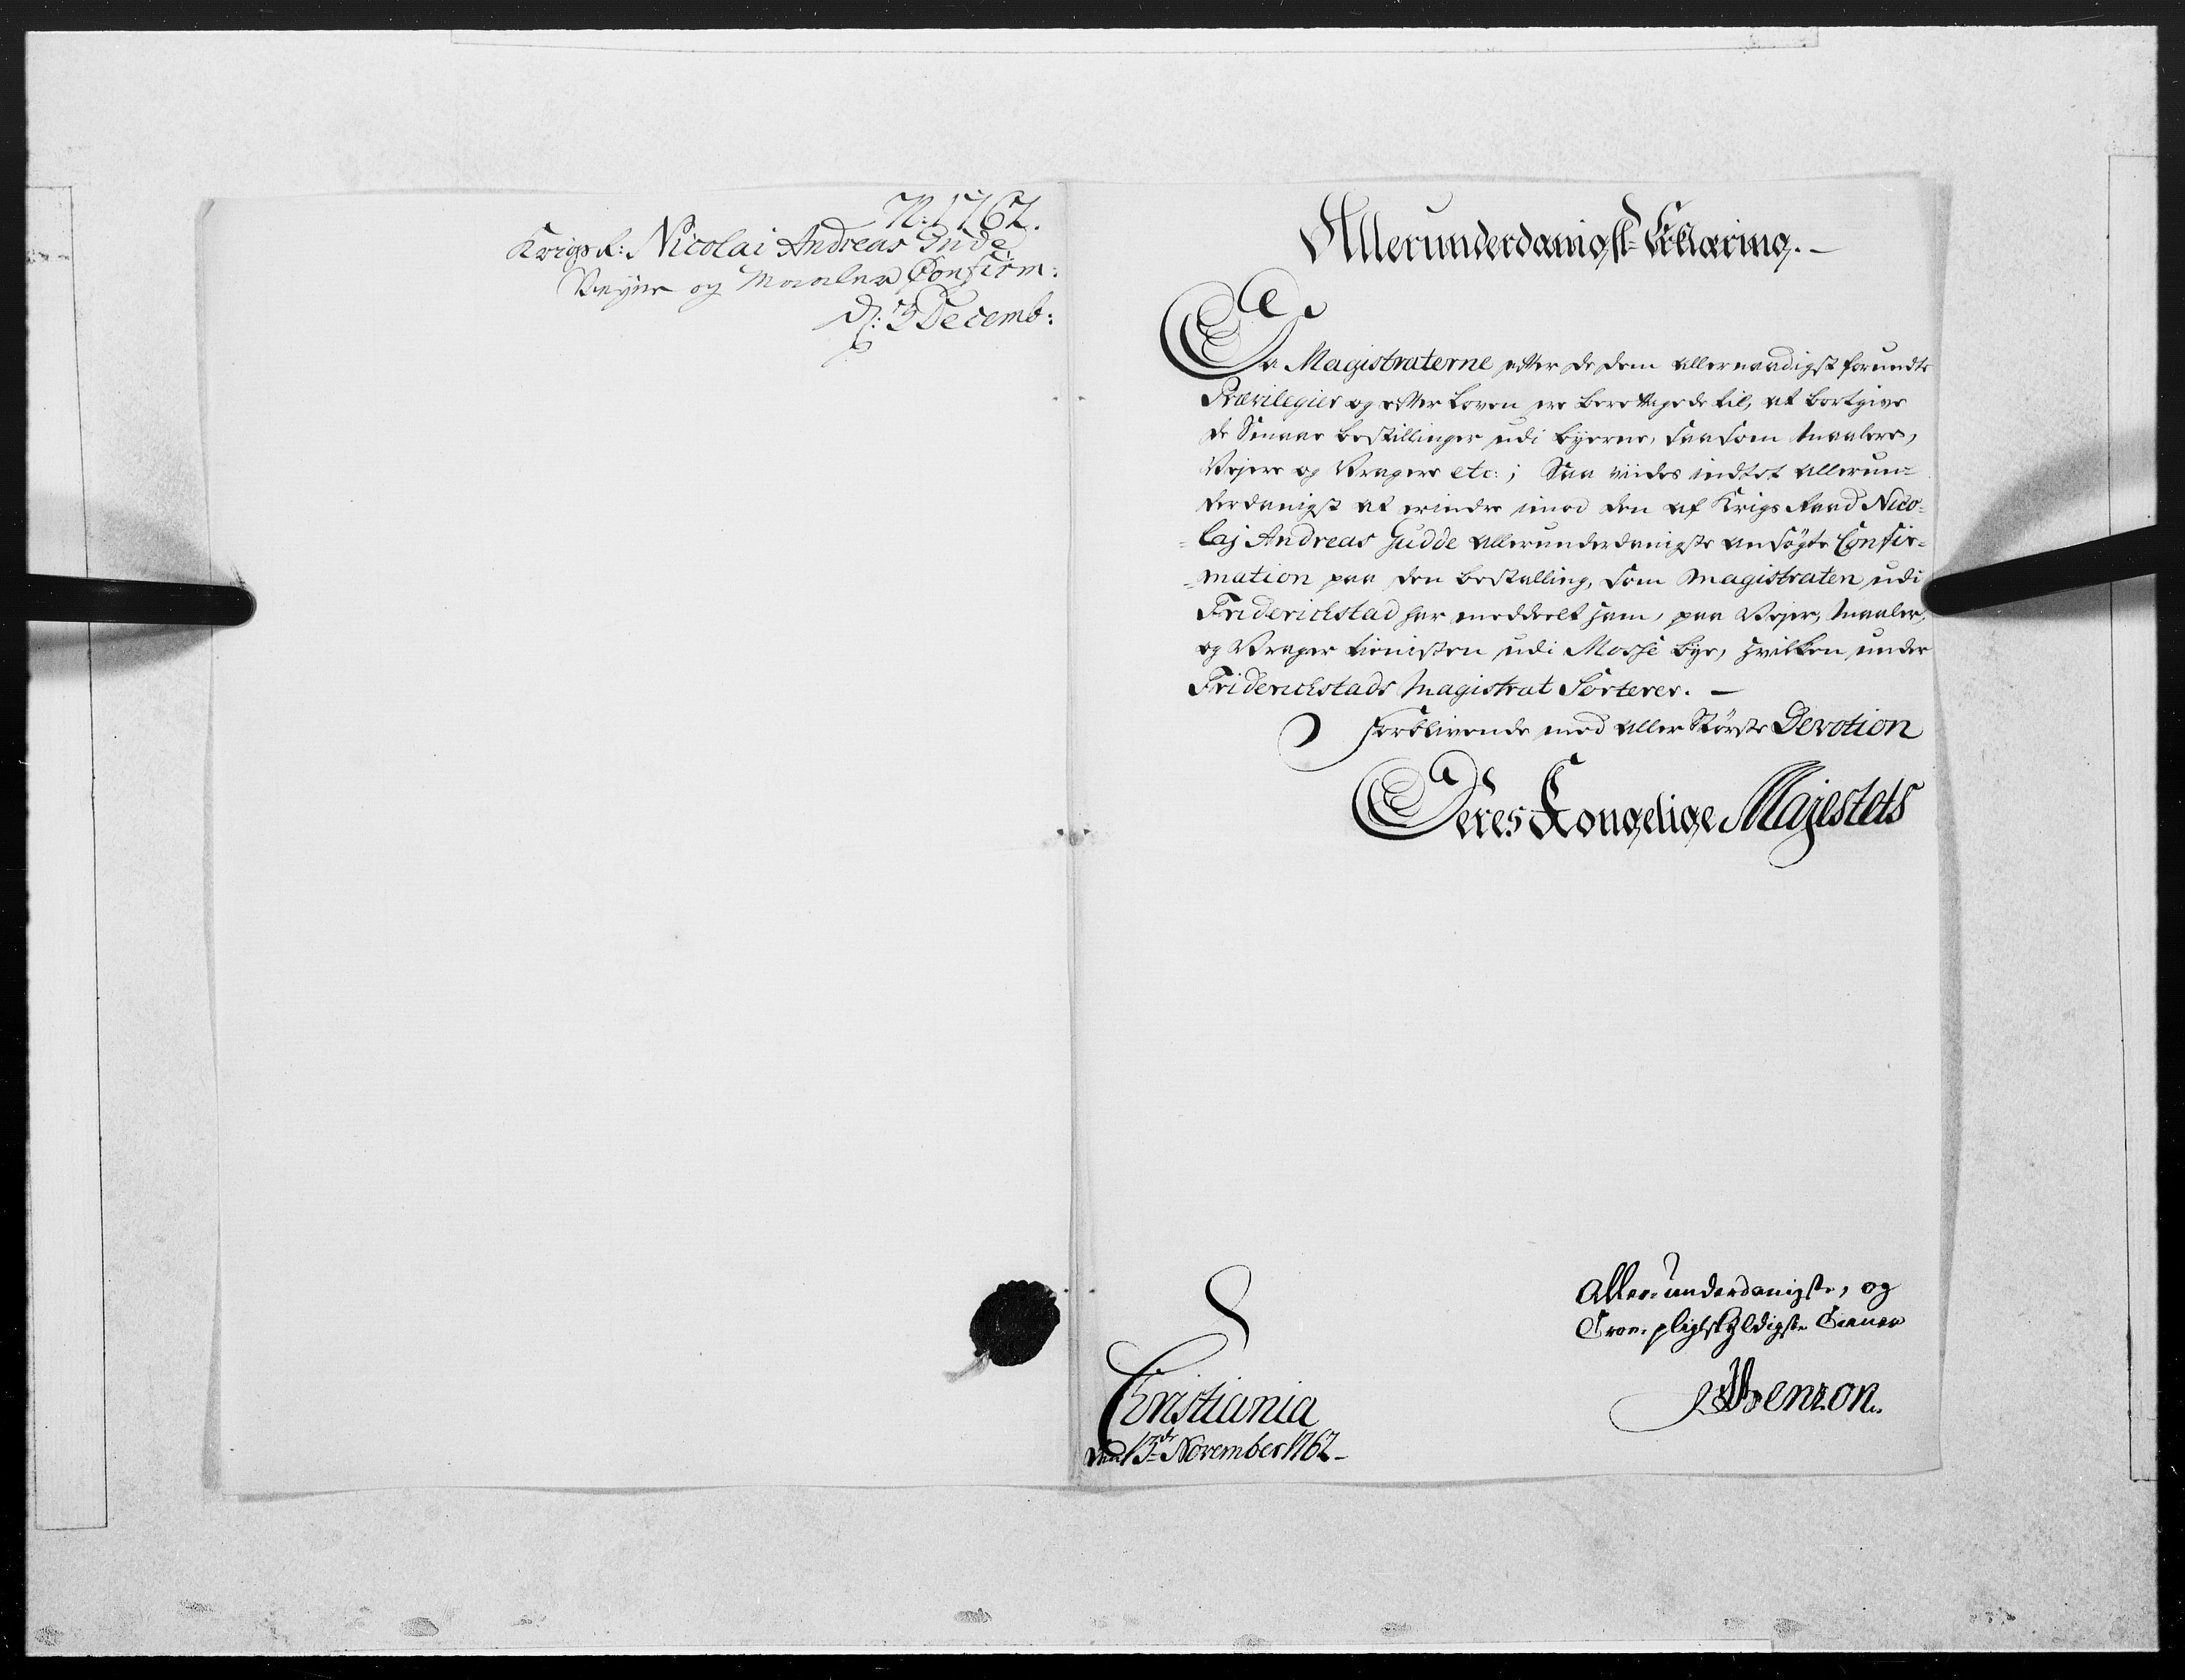 N: 1762.
Krigs R: Nicolai Andreas Gude
Veyer og Maaler Confirm:
D: 3 Decemb:
Allerunderdanigst Erklæring. —
Da Magistraterne efter de dem allernaadigst forundte
Prævilegier og efter Loven ere berettigede til, at bortgive
de Smaae bestillinger udi byerne, saasom Maalere,
Vejere og Vragere etc:; Saa vides indtet allerun-
derdanigst at erindre imod den af Krigs Raad Nico-
laj Andreas Gudde allerunderdanigste ansøgte Confir-
mation paa den bestalling, som Magistraten udi
Friderichstad har meddeelt ham, paa Vejer, Maaler,
og Vrager tienisten udi Mosse bye, hvilken under
Friderichstads Magistrat Sorterer. —
Forblivende med aller Største Devotion
Deres Kongelige Majestets
Aller-underdanigste, og
Troe-pligtskyldigste Tiener
Benzon.
Christiania
den 13de November 1762 -